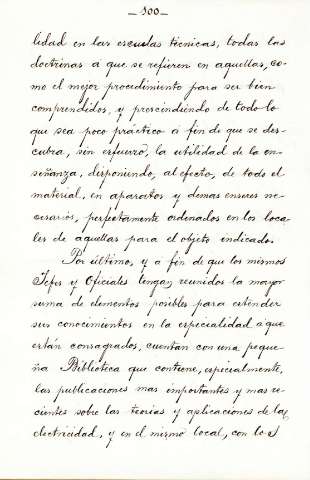 -100-
lidad en las escuelas técnicas, todas las
doctrinas á que se refieren en aquellas, co-
mo el mejor procedimiento para ser bien
comprendidos, y prescindiendo de todo lo
que sea poco práctico á fin de que se des-
cubra, sin esfuerzo, la utilidad de la en-
señanza, disponiendo, al efecto, de todo el
material, en aparatos y demas enseres ne-
cesarios, perfectamente ordenados en los loca-
les de aquellas para el objeto indicado.
Por último, y á fin de que los mismos
Jefes y Oficiales tengan reunidos la mayor
suma de elementos posibles para estender
sus conocimientos en la especialidad a que
están consagrados, cuentan con una peque-
ña Biblioteca que contiene, especialmente,
las publicaciones mas importantes y mas re-
cientes sobre las teorias y aplicaciones de la
electricidad, y en el mismo local, con los